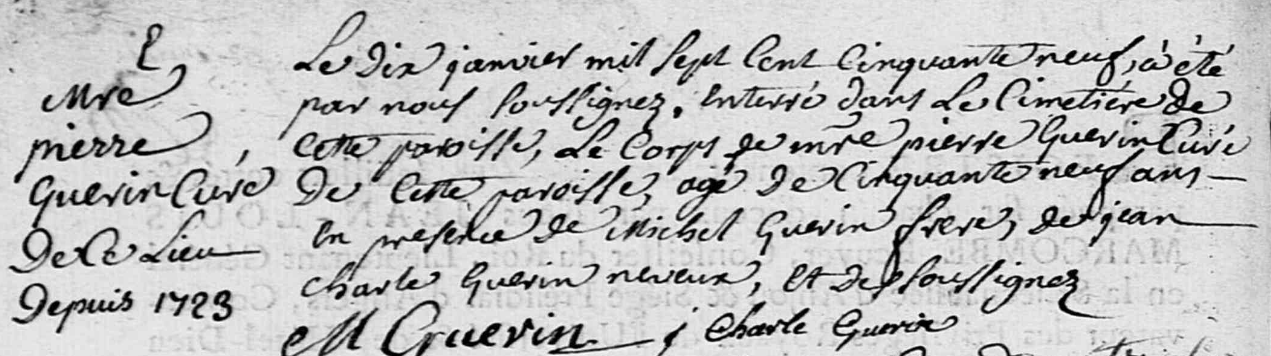 E
Mre
pierre
Guerin Curé
De Ce Lieu
Depuis 1723
Le Dix janvier mil sept Cent Cinquante neuf, à été
par nous soussignez, Enterré dans Le Cimetiére de
Cette paroisse, Le Corps de mre pierre Guerin Curé
De Cette paroisse, agé De Cinquante neuf ans
En présence de Michel Guerin frere, de jean
charle Guerin neveux, Et de soussignez
M Guerin j Charle Guerin